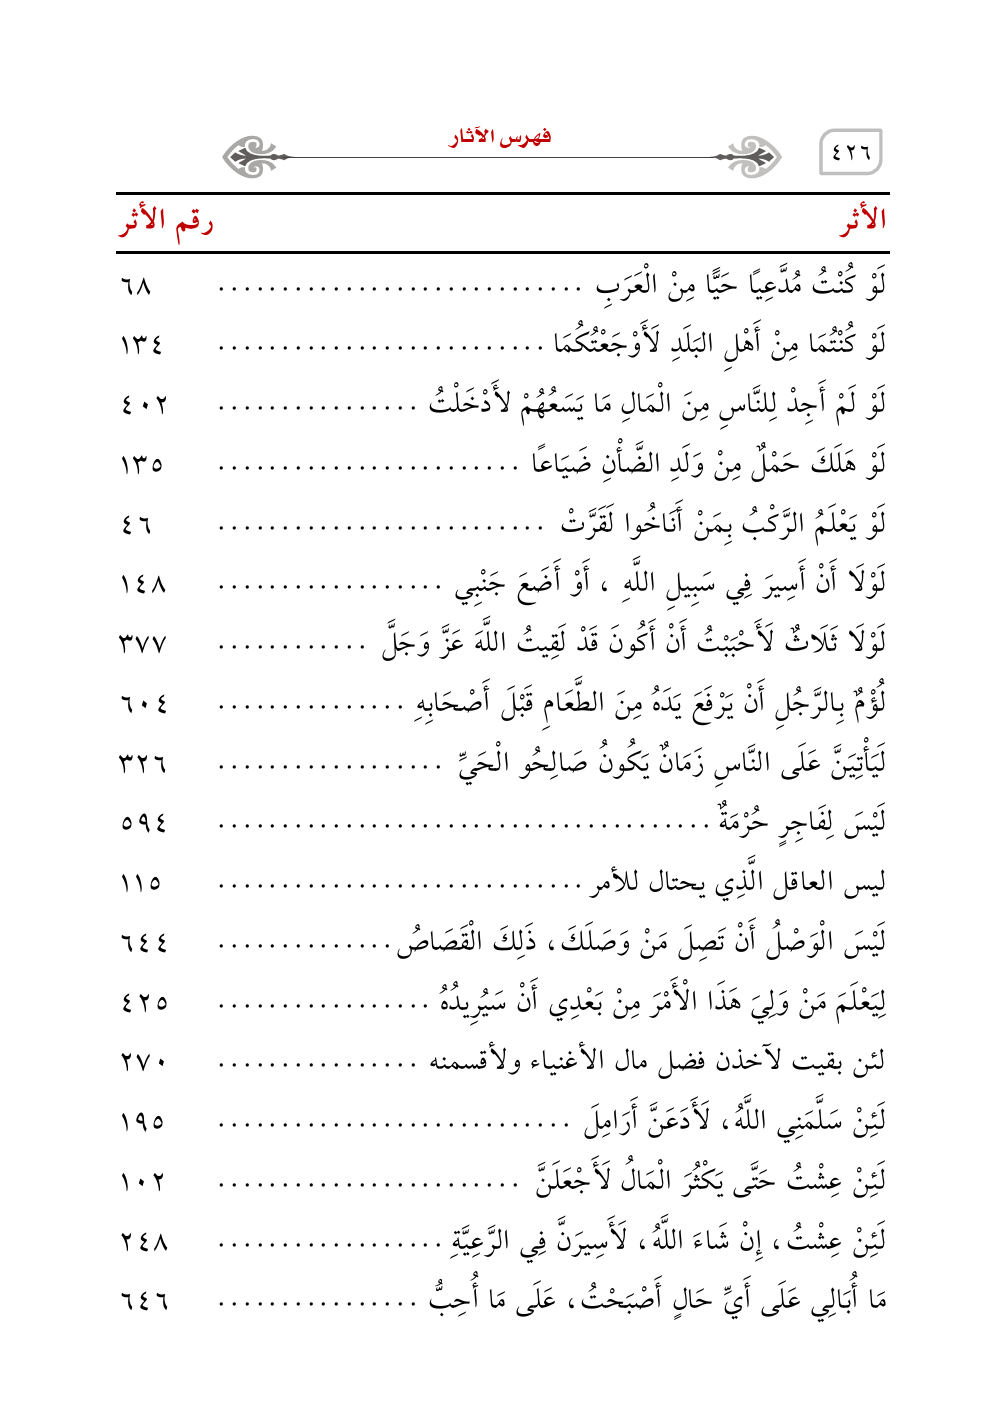 ٤٢٦
فهرس الآثار
الأثر رقم الأثر
لَوْ كُنْتُ مُدَّعِيًا حَيًّا مِنْ الْعَرَبِ ............................. ٦٨
لَوْ كُنْتُمَا مِنْ أَهْلِ البَلَدِ لَأَوْجَعْتُكُمَا .......................... ١٣٤
لَوْ لَمْ أَجِدْ لِلنَّاسِ مِنَ الْمَالِ مَا يَسَعُهُمْ لأَدْخَلْتُ ................ ٤٠٢
لَوْ هَلَكَ حَمْلٌ مِنْ وَلَدِ الضَّأْنِ ضَيَاعًا ........................ ١٣٥
لَوْ يَعْلَمُ الرَّكْبُ بِمَنْ أَنَاخُوا لَقَرَّتْ .......................... ٤٦
لَوْلَا أَنْ أَسِيرَ فِي سَبِيلِ اللَّهِ ، أَوْ أَضَعَ جَنْبِي .................. ١٤٨
لَوْلَا ثَلَاثٌ لَأَحْبَبْتُ أَنْ أَكُونَ قَدْ لَقِيتُ اللَّهَ عَزَّ وَجَلَّ ............ ٣٧٧
لُؤْمٌ بِالرَّجُلِ أَنْ يَرْفَعَ يَدَهُ مِنَ الطَّعَامِ قَبْلَ أَصْحَابِهِ ............... ٦٠٤
لَيَأْتِيَنَّ عَلَى النَّاسِ زَمَانٌ يَكُونُ صَالِحُو الْحَيِّ .................. ٣٢٦
لَيْسَ لِفَاجِرٍ حُرْمَةٌ ....................................... ٥٩٤
ليس العاقل الَّذِي يحتال للأمر ............................. ١١٥
لَيْسَ الْوَصْلُ أَنْ تَصِلَ مَنْ وَصَلَكَ، ذَلِكَ الْقَصَاصُ .............. ٦٤٤
لِيَعْلَمَ مَنْ وَلِيَ هَذَا الْأَمْرَ مِنْ بَعْدِي أَنْ سَيُرِيدُهُ ................. ٤٢٥
لئن بقيت لآخذن فضل مال الأغنياء ولأقسمنه ................ ٢٧٠
لَئِنْ سَلَّمَنِي اللَّهُ، لَأَدَعَنَّ أَرَامِلَ ............................ ١٩٥
لَئِنْ عِشْتُ حَتَّى يَكْثُرَ الْمَالُ لَأَجْعَلَنَّ ........................ ١٠٢
لَئِنْ عِشْتُ، إِنْ شَاءَ اللَّهُ، لَأَسِيرَنَّ فِي الرَّعِيَّةِ .................. ٢٤٨
مَا أُبَالِي عَلَى أَيِّ حَالٍ أَصْبَحْتُ، عَلَى مَا أُحِبُّ ................ ٦٤٦